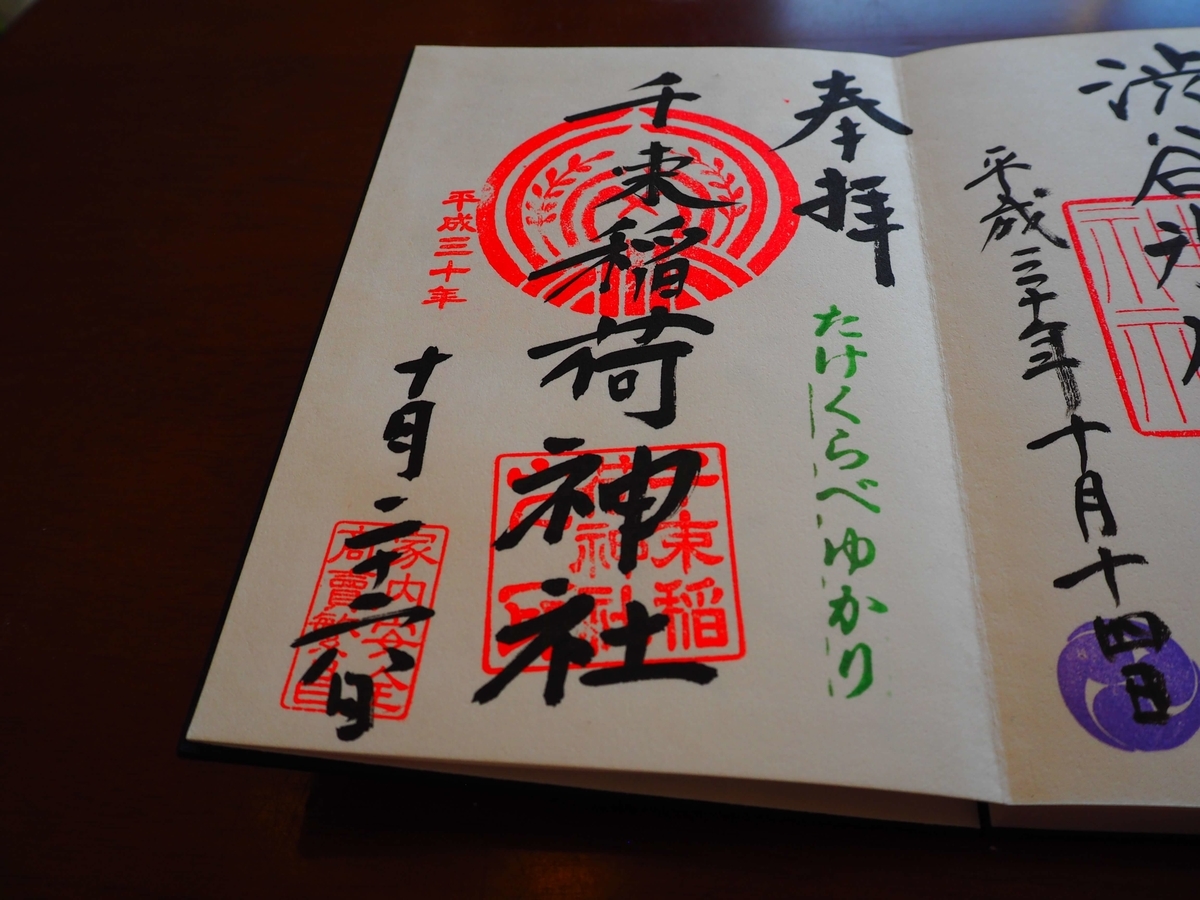 渋谷
平成三十年十月十四日
奉拝
たけくらべゆかり
千束稲荷神社
千束稲
荷神社
平成三十年
十月二十六日
家内安全
商賣繁昌